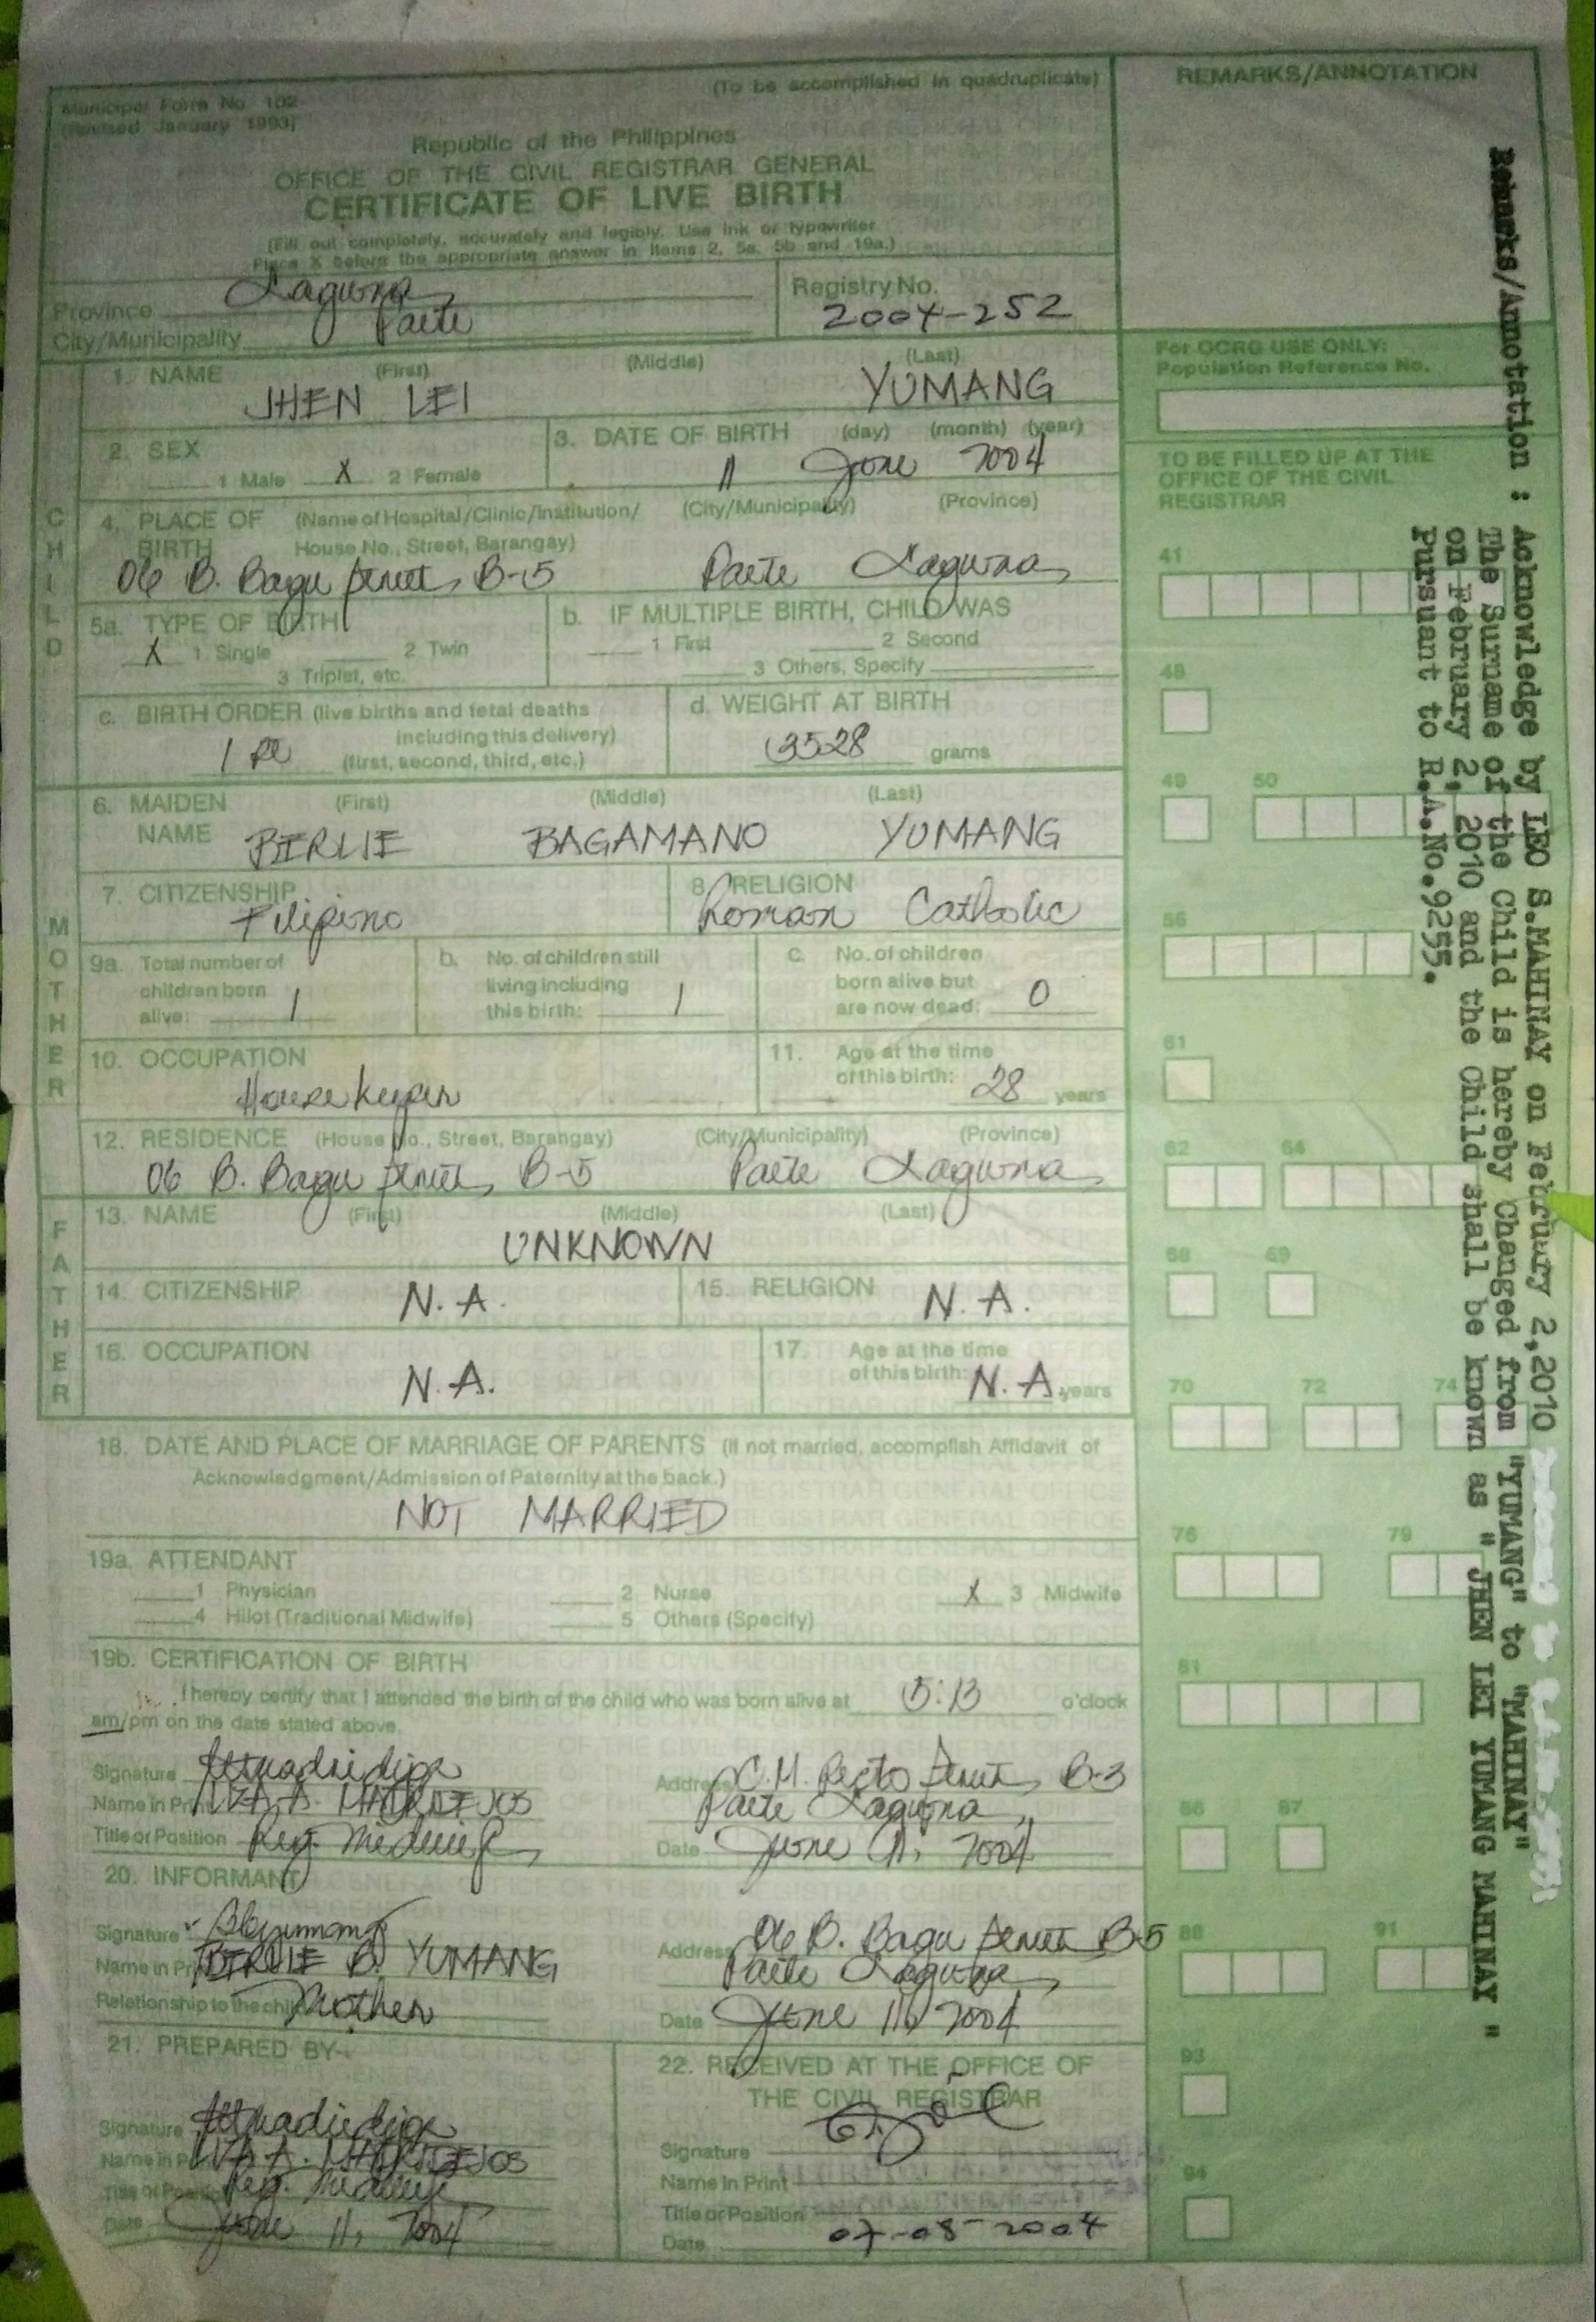 Municipal Form No. 102
(Revised January 1993)
(To be accomplished in quadruplicate)
Republic of the Philippines
OFFICE OF THE CIVIL REGISTRAR GENERAL
CERTIFICATE OF LIVE BIRTH
(Fill out completely, accurately and legibly. Use ink or typewriter.
Place X before the appropriate answer in items 2, 5a, 5b and 19a.)
Province Laguna
City/Municipality Paete
Registry No.
2004-252
CHILD
1. NAME (First) (Middle) (Last)
JHEN LEI YUMANG
2. SEX
1 Male X 2 Female
3. DATE OF BIRTH (day) (month) (year)
11 June 2004
4. PLACE OF BIRTH (Name of Hospital/Clinic/Institution/ House No., Street, Barangay) (City/Municipality) (Province)
06 B. Bagu Street, B-5 Paete Laguna
5a. TYPE OF BIRTH
X 1 Single 2 Twin
3 Triplet, etc.
b. IF MULTIPLE BIRTH, CHILD WAS
1 First 2 Second
3 Others, Specify
c. BIRTH ORDER (live births and fetal deaths
including this delivery)
(first, second, third, etc.)
d. WEIGHT AT BIRTH
3528 grams
MOTHER
6. MAIDEN NAME (First) (Middle) (Last)
BERLIE BAGAMANO YUMANG
7. CITIZENSHIP
Filipino
8. RELIGION
Roman Catholic
9a. Total number of
children born
alive: 1
b. No. of children still
living including
this birth: 1
c. No. of children
born alive but
are now dead: 0
10. OCCUPATION
Housekeeper
11. Age at the time
of this birth: 28 years
12. RESIDENCE (House No., Street, Barangay) (City/Municipality) (Province)
06 B. Bagu Street, B-5 Paete Laguna
FATHER
13. NAME (First) (Middle) (Last)
UNKNOWN
14. CITIZENSHIP N.A.
15. RELIGION N.A.
16. OCCUPATION
N.A.
17. Age at the time
of this birth: N.A. years
18. DATE AND PLACE OF MARRIAGE OF PARENTS (If not married, accomplish Affidavit of
Acknowledgment/Admission of Paternity at the back.)
NOT MARRIED
19a. ATTENDANT
1 Physician 2 Nurse X 3 Midwife
4 Hilot (Traditional Midwife) 5 Others (Specify)
19b. CERTIFICATION OF BIRTH
I hereby certify that I attended the birth of the child who was born alive at 5:13 o'clock
am/pm on the date stated above.
Signature
Name in Print LIZA A. MADRIDEJOS
Title or Position Reg. Midwife
Address C.M. Recto Street, B-3
Paete Laguna
Date June 11, 2004
20. INFORMANT
Signature
Name in Print BERLIE B. YUMANG
Relationship to the child Mother
Address 06 B. Bagu Street B-5
Paete Laguna
Date June 11, 2004
21. PREPARED BY
Signature
Name in Print LIZA A. MADRIDEJOS
Title or Position Reg. Midwife
Date June 11, 2004
22. RECEIVED AT THE OFFICE OF
THE CIVIL REGISTRAR
Signature
Name in Print
Title or Position
Date 07-08-2004
REMARKS/ANNOTATION
For OCRG USE ONLY:
Population Reference No.
TO BE FILLED UP AT THE
OFFICE OF THE CIVIL
REGISTRAR
41
48
49 50
56
61
62 64
68 69
70 72 74
76 79
81
86 87
88 91
93
94
Remarks/Annotation : Acknowledge by LEO S.MAHINAY on February 2,2010
The Surname of the Child is hereby Changed from "YUMANG" to "MAHINAY"
on February 2, 2010 and the Child shall be known as " JHEN LEI YUMANG MAHINAY "
Pursuant to R.A.No.9255.